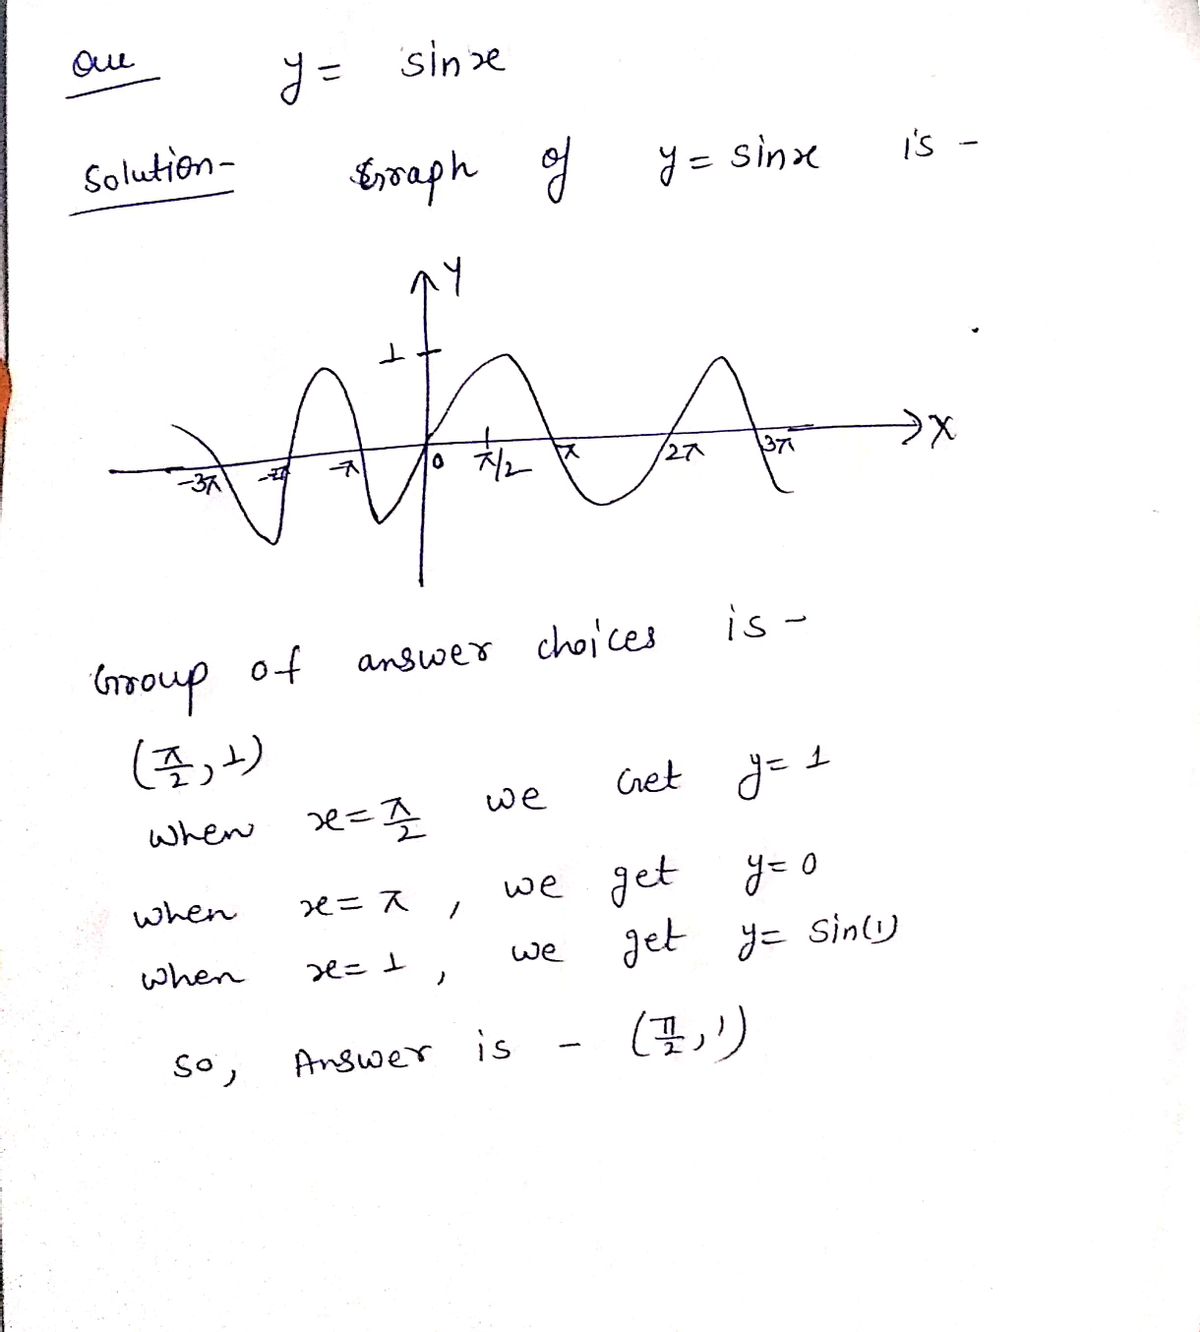 Que y = sin x
Solution- Graph of y = sin x is -
Y
1
-3π -2π -π 0 π/2 π 2π 3π X
Group of answer choices is -
(π/2, 1)
when x = π/2 we Get y = 1
when x = π, we get y = 0
when x = 1, we get y = sin(1)
So, Answer is - (π/2, 1)